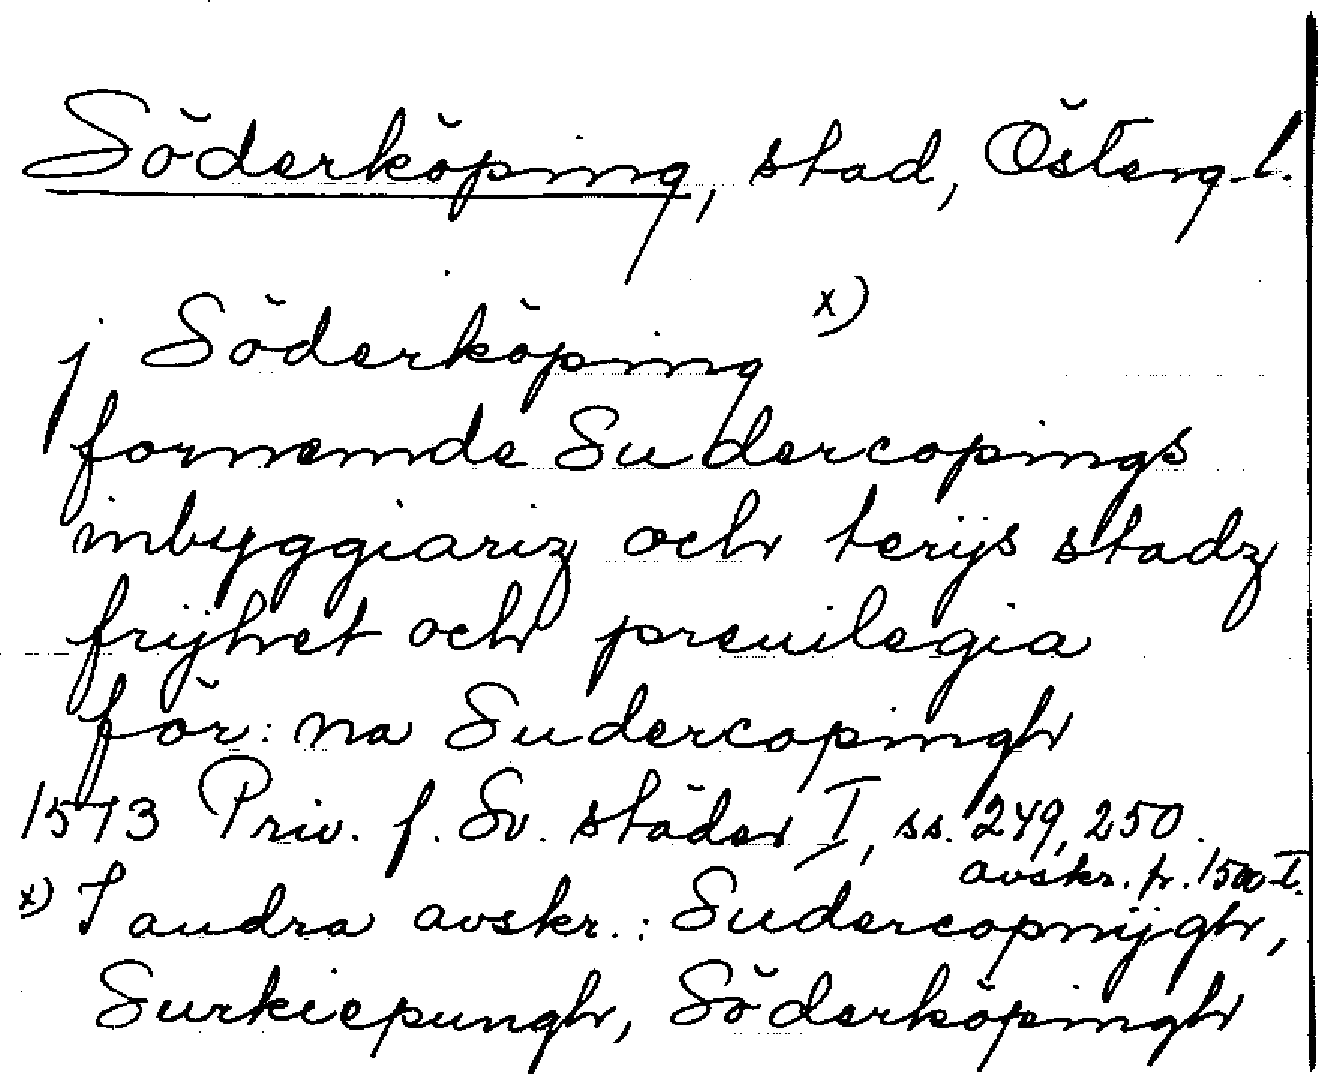 Söderköping, stad, Östergl.
j Söderköping x)
fornemde Sudercopings
inbyggiariz och terijs stadz
frijhet och preuilegia
för: na Sudercopingh
1573 Priv. f. Sv. städer I, ss. 249, 250.
avskr. fr. 1500-t.
x) I andra avskr.: Sudercopnijgh,
Surkiepungh, Söderköpingh